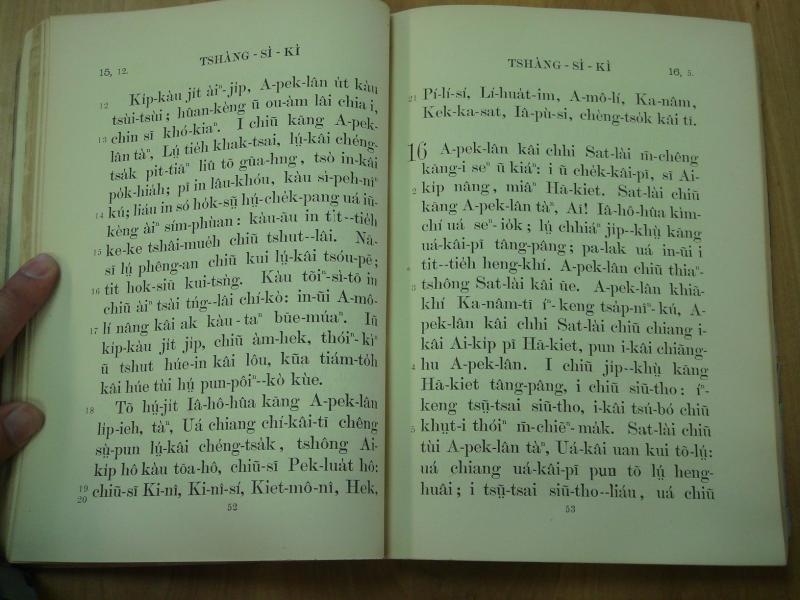 15, 12.
TSHÀNG-SÌ-KÌ
12 Ki̍p-kàu ji̍t àiⁿ-ji̍p, A-pek-lân út kàu
tsùi-tsùi; hûan-kèng ū ou-àm lâi chia i,
13 chin sī khó-kiaⁿ. I chiū kāng A-pek-
lân tàⁿ, Lṳ́ tie̍h khak-tsai, lṳ́-kâi chéng-
tsa̍k pit-tiāⁿ liû tō gūa-hng, tsò in-kâi
po̍k-hia̍h; pī in lâu-khóu, kàu sì-peh-nîⁿ
14 kú; liáu in só ho̍k-sū hṳ́-che̍k-pang uá iū-
kèng àiⁿ sím-phùan: kàu-āu in tit--tie̍h
15 ke-ke tshâi-mue̍h chiū tshut--lâi. Nă-
sī lṳ́ phêng-an chiū kui lṳ́-kâi tsóu-pĕ;
16 tit hok-siū kui-tsṅg. Kàu tõiⁿ-sì-tō in
chiū àiⁿ tsài tńg--lâi chí-kò: in-ūi A-mô-
17 lí nâng kâi ak kàu-taⁿ būe-múaⁿ. Iū
ki̍p-kàu ji̍t ji̍p, chiū àm-hek, thóiⁿ-kìⁿ
ū tshut húe-in kâi lôu, kūa tiám-to̍h
kâi húe tùi hṳ́ pun-pôiⁿ--kò kùe.
18 Tō hṳ́-ji̍t Iâ-hô-hûa kāng A-pek-lân
li̍p-ieh, tàⁿ, Uá chiang chí-kâi-tī chêng
sṳ̀-pun lṳ́-kâi chéng-tsa̍k, tshông Ai-
ki̍p hô kàu tōa-hô, chiū-sī Pek-lua̍t hô:
19 chiū-sī Ki-nî, Ki-nî-sí, Kiet-mô-nî, Hek,
20
52
TSHÀNG-SÌ-KÌ
16, 5.
21 Pí-lí-sí, Lí-hua̍t-im, A-mô-lí, Ka-nâm,
Kek-ka-sat, Iâ-pù-si, chèng-tso̍k kâi tī.
16 A-pek-lân kâi chhi Sat-lài m̄-chêng
kāng-i seⁿ ū kiáⁿ: i ū che̍k-kâi-pī, sī Ai-
2 ki̍p nâng, miâⁿ Hā-kiet. Sat-lài chiū
kāng A-pek-lân tàⁿ, Ai! Iâ-hô-hûa kìm-
chí uá seⁿ-io̍k; lṳ́ chhiáⁿ ji̍p--khṳ̀ kāng
uá-kâi-pī tâng-pâng; pa-lak uá in-ūi i
tit--tie̍h heng-khí. A-pek-lân chiū thiaⁿ-
3 tshông Sat-lài kâi ūe. A-pek-lân khiā-
khí Ka-nâm-tī íⁿ-keng tsa̍p-nîⁿ-kú, A-
pek-lân kâi chhi Sat-lài chiū chiang i-
kâi Ai-ki̍p pī Hā-kiet, pun i-kâi chiāng-
4 hu A-pek-lân. I chiū ji̍p--khṳ̀ kāng
Hā-kiet tâng-pâng, i chiū siū-tho: íⁿ-
keng tsṳ̄-tsai siū-tho, i-kâi tsú-bó chiū
5 khṳt-i thóiⁿ m̄-chiēⁿ-ma̍k. Sat-lài chiū
tùi A-pek-lân tàⁿ, Uá-kâi uan kui tō-lṳ́:
uá chiang uá-kâi-pī pun tō lṳ́ heng-
huâi; i tsṳ̄-tsai siū-tho--liáu, uá chiū
53